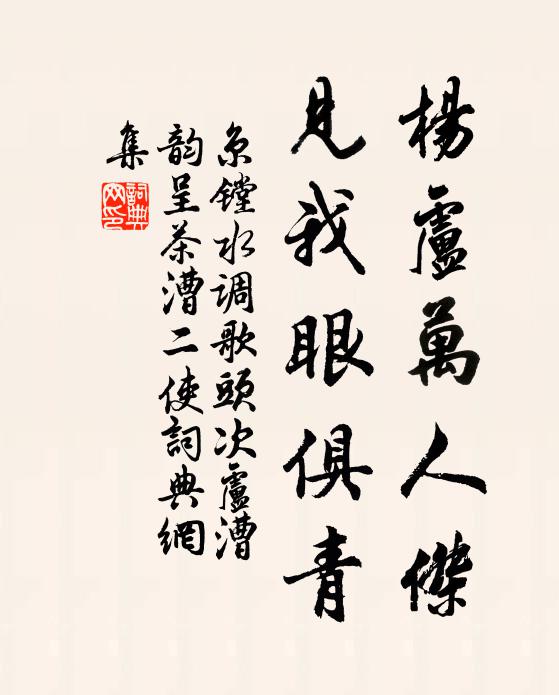 楊盧萬人傑
見我眼俱青
京鏜水调歌頭次盧漕
韵呈茶漕二使詞典網
集
詞典网印